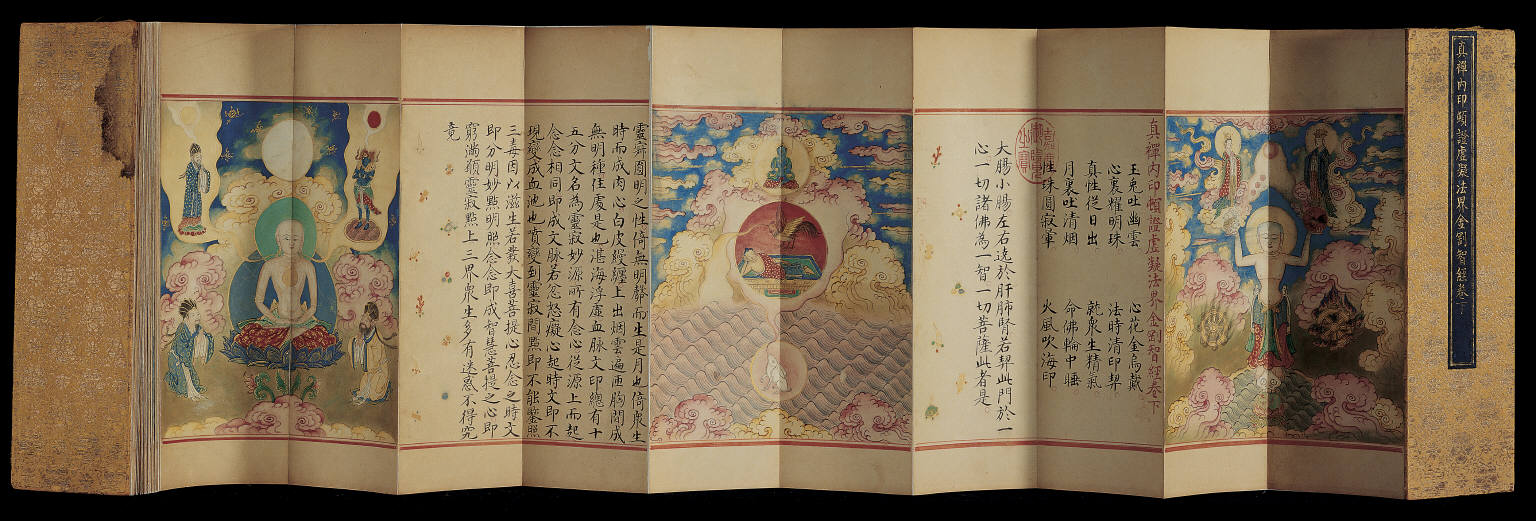 真禪內印頓證虛凝法界金剛智經卷下
真禪內印頓證虛凝法界金剛智經卷下
玉兔吐幽雲 心花金烏戴
心裏耀明珠 法時清印契
真性從日出 就衆生精氣
月裏吐清烟 命佛輪中睡
性珠圓寂輩 火風吹海印
大腸小腸左右遶於肝肺腎若契此門於一
心一切諸佛為一智一切菩薩此者是
靈寂圓明之性倚無明馨而生是月也倚衆生
時而成肉心白皮縵纏上出烟雲遍匝胸間成
無明種住處是也湛海浮虛血脉文印總有十
五分文名為靈寂妙源所有念心從源上而起
念念相同即成文脉若忿怒癡心起時文即不
現變成血池也噴變到靈寂間點即不能鑒照
三毒因以滋生若發大喜菩提心忍念之時文
即分明妙點明照念念即成智慧菩提之心即
窮滿願靈寂點上三界衆生多有迷惑不得究
竟